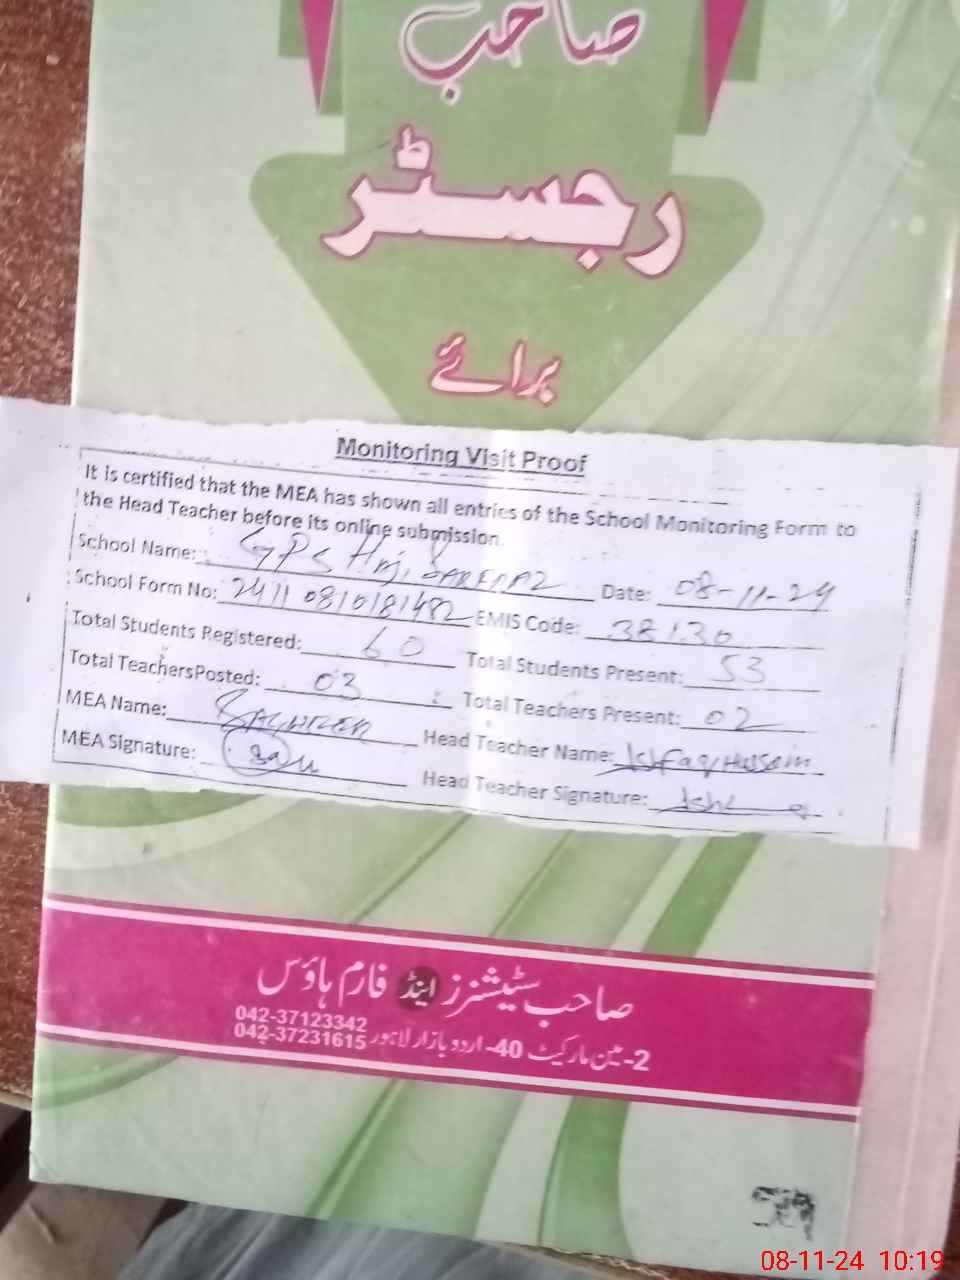 صاحب
رجسٹر
برائے
Monitoring Visit Proof
It is certified that the MEA has shown all entries of the School Monitoring Form to
the Head Teacher before its online submission.
School Name: GPS Haji Date: 08-11-24
School Form No: 24110810181482 EMIS Code: 38130
Total Students Registered: 60 Total Students Present: 53
Total TeachersPosted: 03 Total Teachers Present: 02
MEA Name: Head Teacher Name: Ishfaq Hussain
MEA Signature: Head Teacher Signature:
صاحب سٹیشنرز اینڈ فارم ہاؤس
042-37123342
2-مین مارکیٹ 40-اردو بازار لاہور 042-37231615
08-11-24 10:19